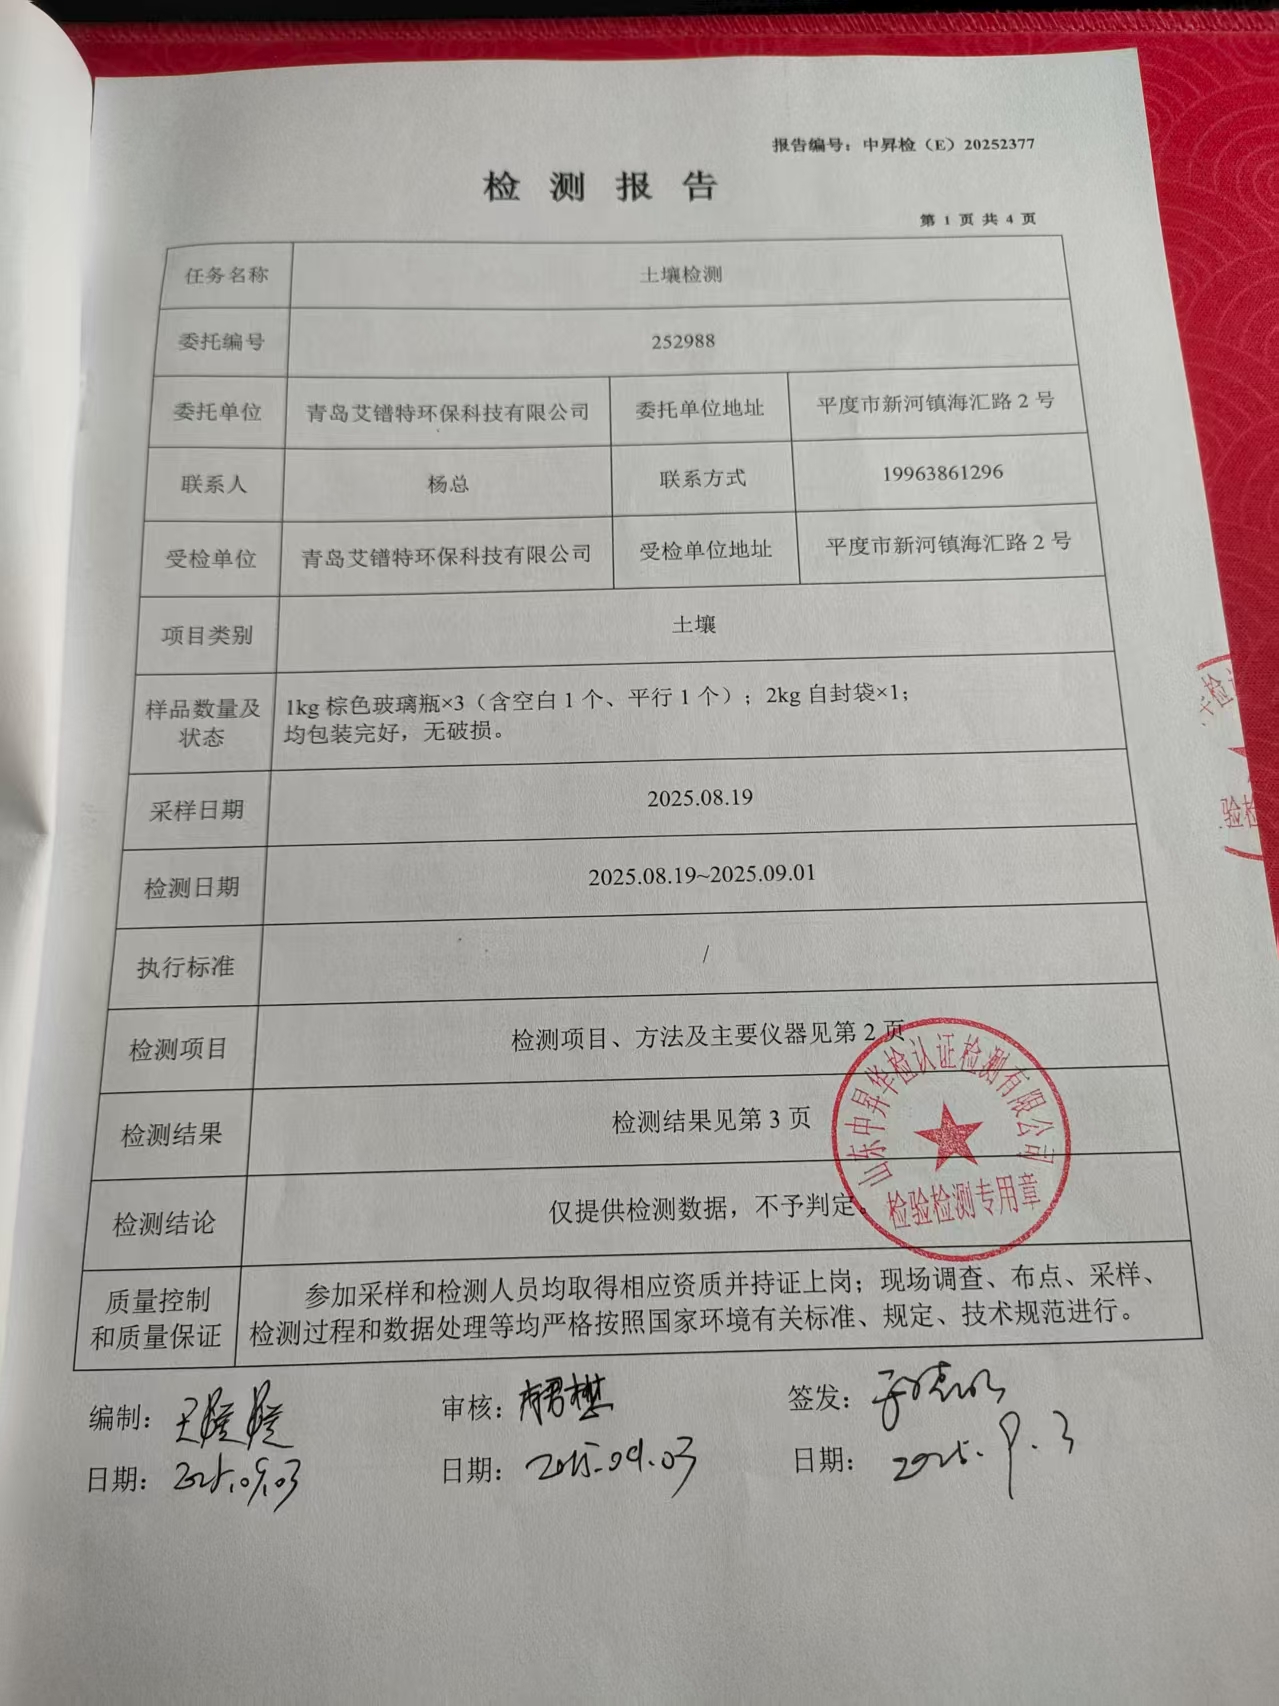 报告编号：中昇检（E）20252377
检 测 报 告
第 1 页 共 4 页
任务名称 土壤检测
委托编号 252988
委托单位 青岛艾镨特环保科技有限公司 委托单位地址 平度市新河镇海汇路 2 号
联系人 杨总 联系方式 19963861296
受检单位 青岛艾镨特环保科技有限公司 受检单位地址 平度市新河镇海汇路 2 号
项目类别 土壤
样品数量及
状态
1kg 棕色玻璃瓶×3（含空白 1 个、平行 1 个）；2kg 自封袋×1；
均包装完好，无破损。
采样日期 2025.08.19
检测日期 2025.08.19~2025.09.01
执行标准 /
检测项目 检测项目、方法及主要仪器见第 2 页
检测结果 检测结果见第 3 页
检测结论 仅提供检测数据，不予判定。
山东中昇华检认证检测有限公司
检验检测专用章
质量控制
和质量保证
参加采样和检测人员均取得相应资质并持证上岗；现场调查、布点、采样、
检测过程和数据处理等均严格按照国家环境有关标准、规定、技术规范进行。
编制： 审核： 签发：
日期：2025.09.03 日期：2025.09.03 日期：2025.9.3